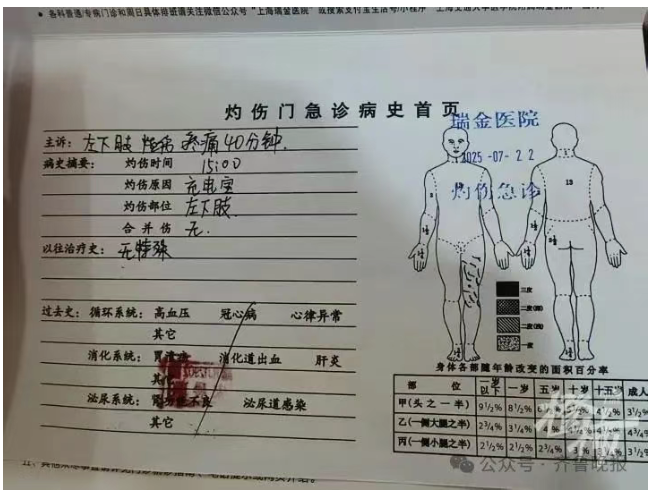 ● 各科普通/专病门诊和周日具体排班请关注微信公众号“上海瑞金医院”或搜索支付宝生活号/小程序
灼伤门急诊病史首页
瑞金医院
2025-07-22
灼伤急诊
主诉：左下肢 疼痛40分钟.
病史摘要：灼伤时间 15:00
灼伤原因 充电宝
灼伤部位 左下肢.
合并伤 无.
以往治疗史：无特殊
过去史：循环系统：高血压 冠心病 心律异常
其它
消化系统：胃溃疡 消化道出血 肝炎
其它
泌尿系统：肾功能不良 泌尿道感染
其它
三度
二度(深)
二度(浅)
一度
身体各部随年龄改变的面积百分率
部 位 一岁以下 一岁 五岁 十岁 十五岁 成人
甲(头之一半) 9½% 8½% 3½%
乙(一侧大腿之半) 2¾% 3¼% 4% 4¾%
丙(一侧小腿之半) 2½% 2½% 2¾% 3% 3½%
公众号·齐鲁晚报